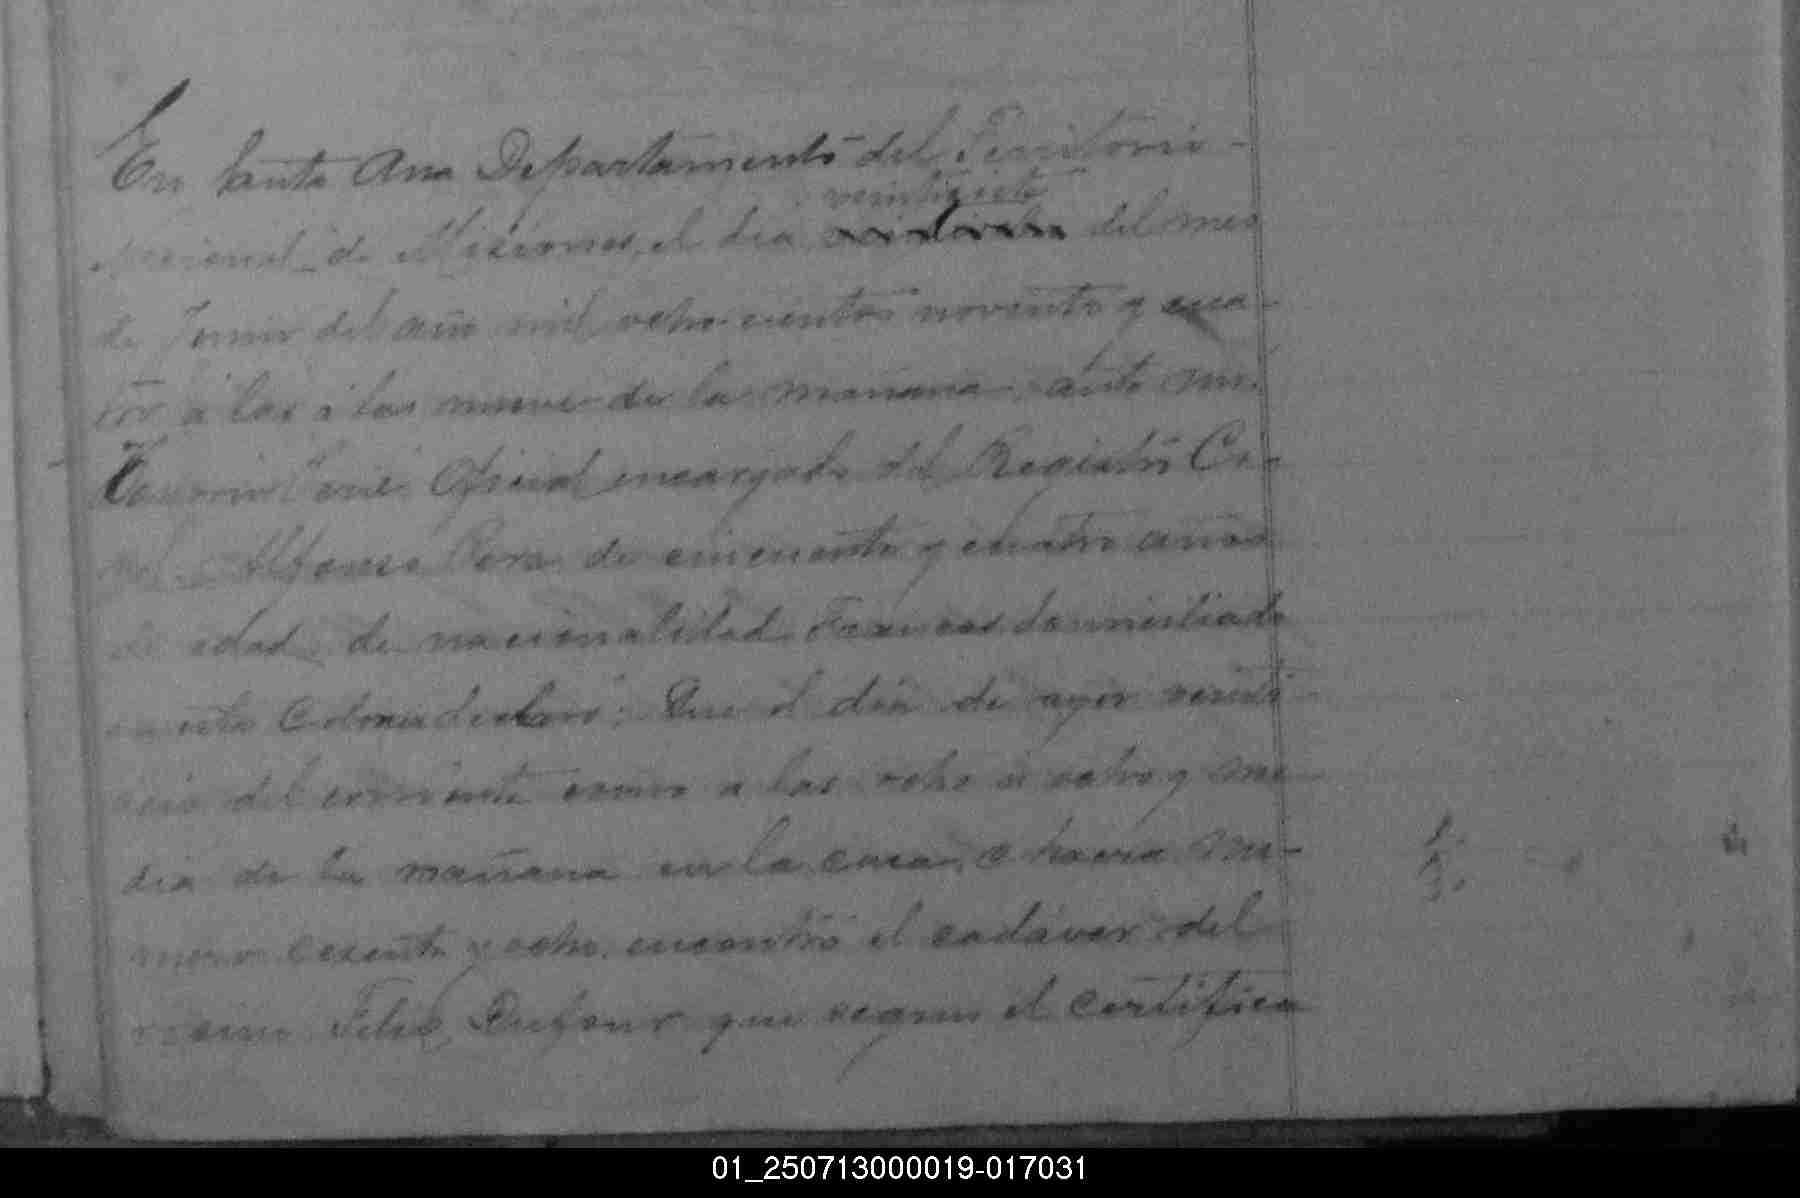 En Santa Ana Departamento del Territorio
veintisiete
Nacional de Misiones, el dia del mes
de del año mil ochocientos noventa y cua-
tro á las á las nueve de la mañana, ante mi.
Oficial encargado del Registro Ci-
Alfonso de cincuenta y cuatro años
de edad, de nacionalidad Frances domiciliado
en esta Colonia declaró: Que el dia de ayer veinti
seis del corriente como a las ocho ú ocho y me
dia de la mañana en la casa, o hacra nu-
mero cesenta y ocho, encontró el cadáver del
vecino Felix Dufour que segun el certifica
01_250713000019-017031